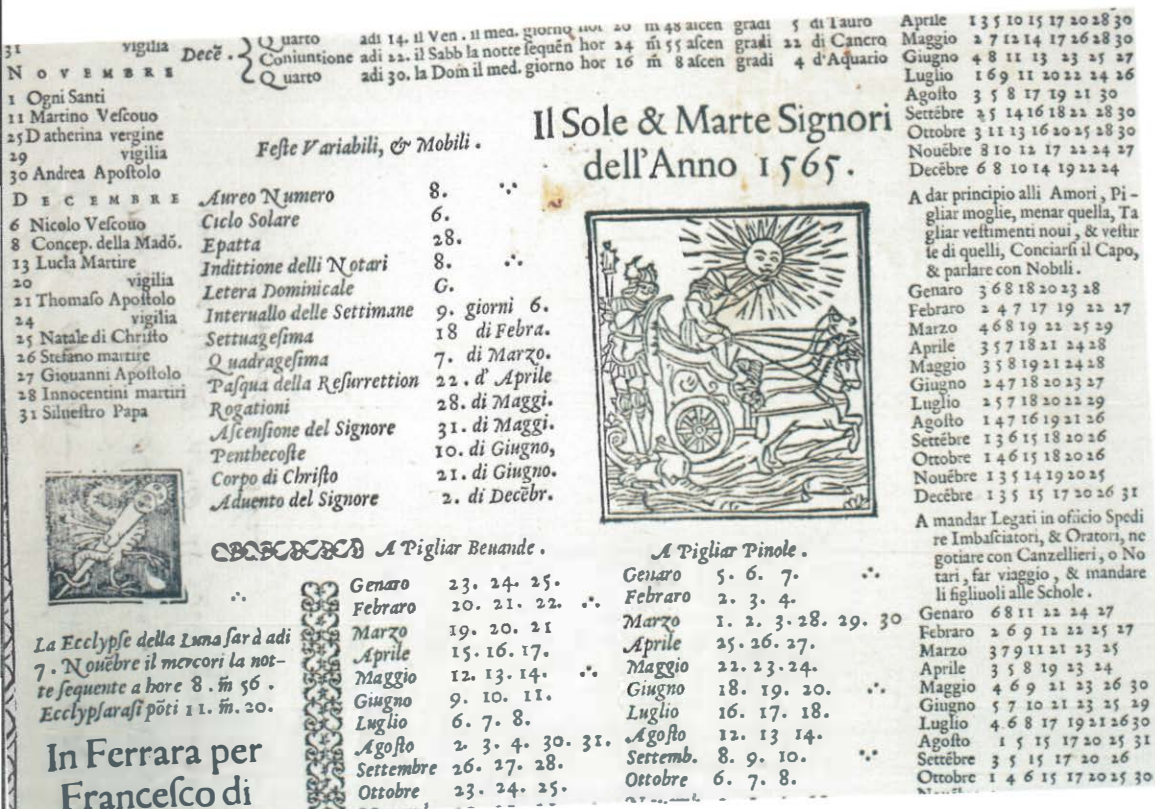 31 vigilia
NOVEMBRE
1 Ogni Santi
11 Martino Veſcouo
25 Datherina vergine
29 vigilia
30 Andrea Apoſtolo
DECEMBRE
6 Nicolo Veſcouo
8 Concep. della Madō.
13 Lucia Martire
20 vigilia
21 Thomaſo Apoſtolo
24 vigilia
25 Natale di Chriſto
26 Stefano martire
27 Giouanni Apoſtolo
28 Innocentini martiri
31 Silueſtro Papa
La Ecclypſe della Luna ſarà adi
7. Nouēbre il mercori la not-
te ſequente a hore 8. m̄ 56.
Ecclypſaraſi pōti 11. m̄. 20.
In Ferrara per
Franceſco di
Decē.
Quarto adi 14. il Ven. il med. giorno hor 20 m 48 aſcen gradi 5 di Tauro
Coniuntione adi 22. il Sabb la notte ſequēn hor 24 m̄ 55 aſcen gradi 22 di Cancro
Quarto adi 30. la Dom il med. giorno hor 16 m̄ 8 aſcen gradi 4 d'Aquario
Feſte Variabili, & Mobili.
Aureo Numero 8.
Ciclo Solare 6.
Epatta 28.
Indittione delli Notari 8.
Letera Dominicale G.
Interuallo delle Settimane 9. giorni 6.
Settuageſima 18 di Febra.
Quadrageſima 7. di Marzo.
Paſqua della Reſurrettion 22. d' Aprile
Rogationi 28. di Maggi.
Aſcenſione del Signore 31. di Maggi.
Penthecoſte 10. di Giugno,
Corpo di Chriſto 21. di Giugno.
Aduento del Signore 2. di Decēbr.
Il Sole & Marte Signori
dell'Anno 1565.
A Pigliar Beuande.
Genaro 23. 24. 25.
Febraro 20. 21. 22.
Marzo 19. 20. 21
Aprile 15. 16. 17.
Maggio 12. 13. 14.
Giugno 9. 10. 11.
Luglio 6. 7. 8.
Agoſto 2. 3. 4. 30. 31.
Settembre 26. 27. 28.
Ottobre 23. 24. 25.
A Pigliar Pinole.
Genaro 5. 6. 7.
Febraro 2. 3. 4.
Marzo 1. 2. 3. 28. 29. 30
Aprile 25. 26. 27.
Maggio 22. 23. 24.
Giugno 18. 19. 20.
Luglio 16. 17. 18.
Agoſto 12. 13 14.
Settemb. 8. 9. 10.
Ottobre 6. 7. 8.
Aprile 1 3 5 10 15 17 20 28 30
Maggio 2 7 12 14 17 26 28 30
Giugno 4 8 11 13 23 25 27
Luglio 1 6 9 11 20 22 24 26
Agoſto 3 5 8 17 19 21 30
Settēbre 25 14 16 18 22 28 30
Ottobre 3 11 13 16 20 25 28 30
Nouēbre 8 10 12 17 22 24 27
Decēbre 6 8 10 14 19 22 24
A dar principio alli Amori, Pi-
gliar moglie, menar quella, Ta
gliar veſtimenti noui, & veſtir
ſe di quelli, Conciarſi il Capo,
& parlare con Nobili.
Genaro 3 6 8 18 20 23 28
Febraro 2 4 7 17 19 22 27
Marzo 4 6 8 19 22 25 29
Aprile 3 5 7 18 21 24 28
Maggio 3 5 8 19 21 24 28
Giugno 2 4 7 18 20 23 27
Luglio 2 5 7 18 20 22 29
Agoſto 1 4 7 16 19 21 26
Settēbre 1 3 6 15 18 20 26
Ottobre 1 4 6 15 18 20 26
Nouēbre 1 3 5 14 19 20 25
Decēbre 1 3 5 15 17 20 26 31
A mandar Legati in oficio Spedi
re Imbaſciatori, & Oratori, ne
gotiare con Canzellieri, o No
tari, far viaggio, & mandare
li figliuoli alle Schole.
Genaro 6 8 11 22 24 27
Febraro 2 6 9 12 22 25 27
Marzo 3 7 9 11 21 23 25
Aprile 3 5 8 19 23 24
Maggio 4 6 9 21 23 26 30
Giugno 5 7 10 21 23 25 29
Luglio 4 6 8 17 19 21 26 30
Agoſto 1 5 15 17 20 25 31
Settēbre 3 5 15 17 20 26
Ottobre 1 4 6 15 17 20 25 30